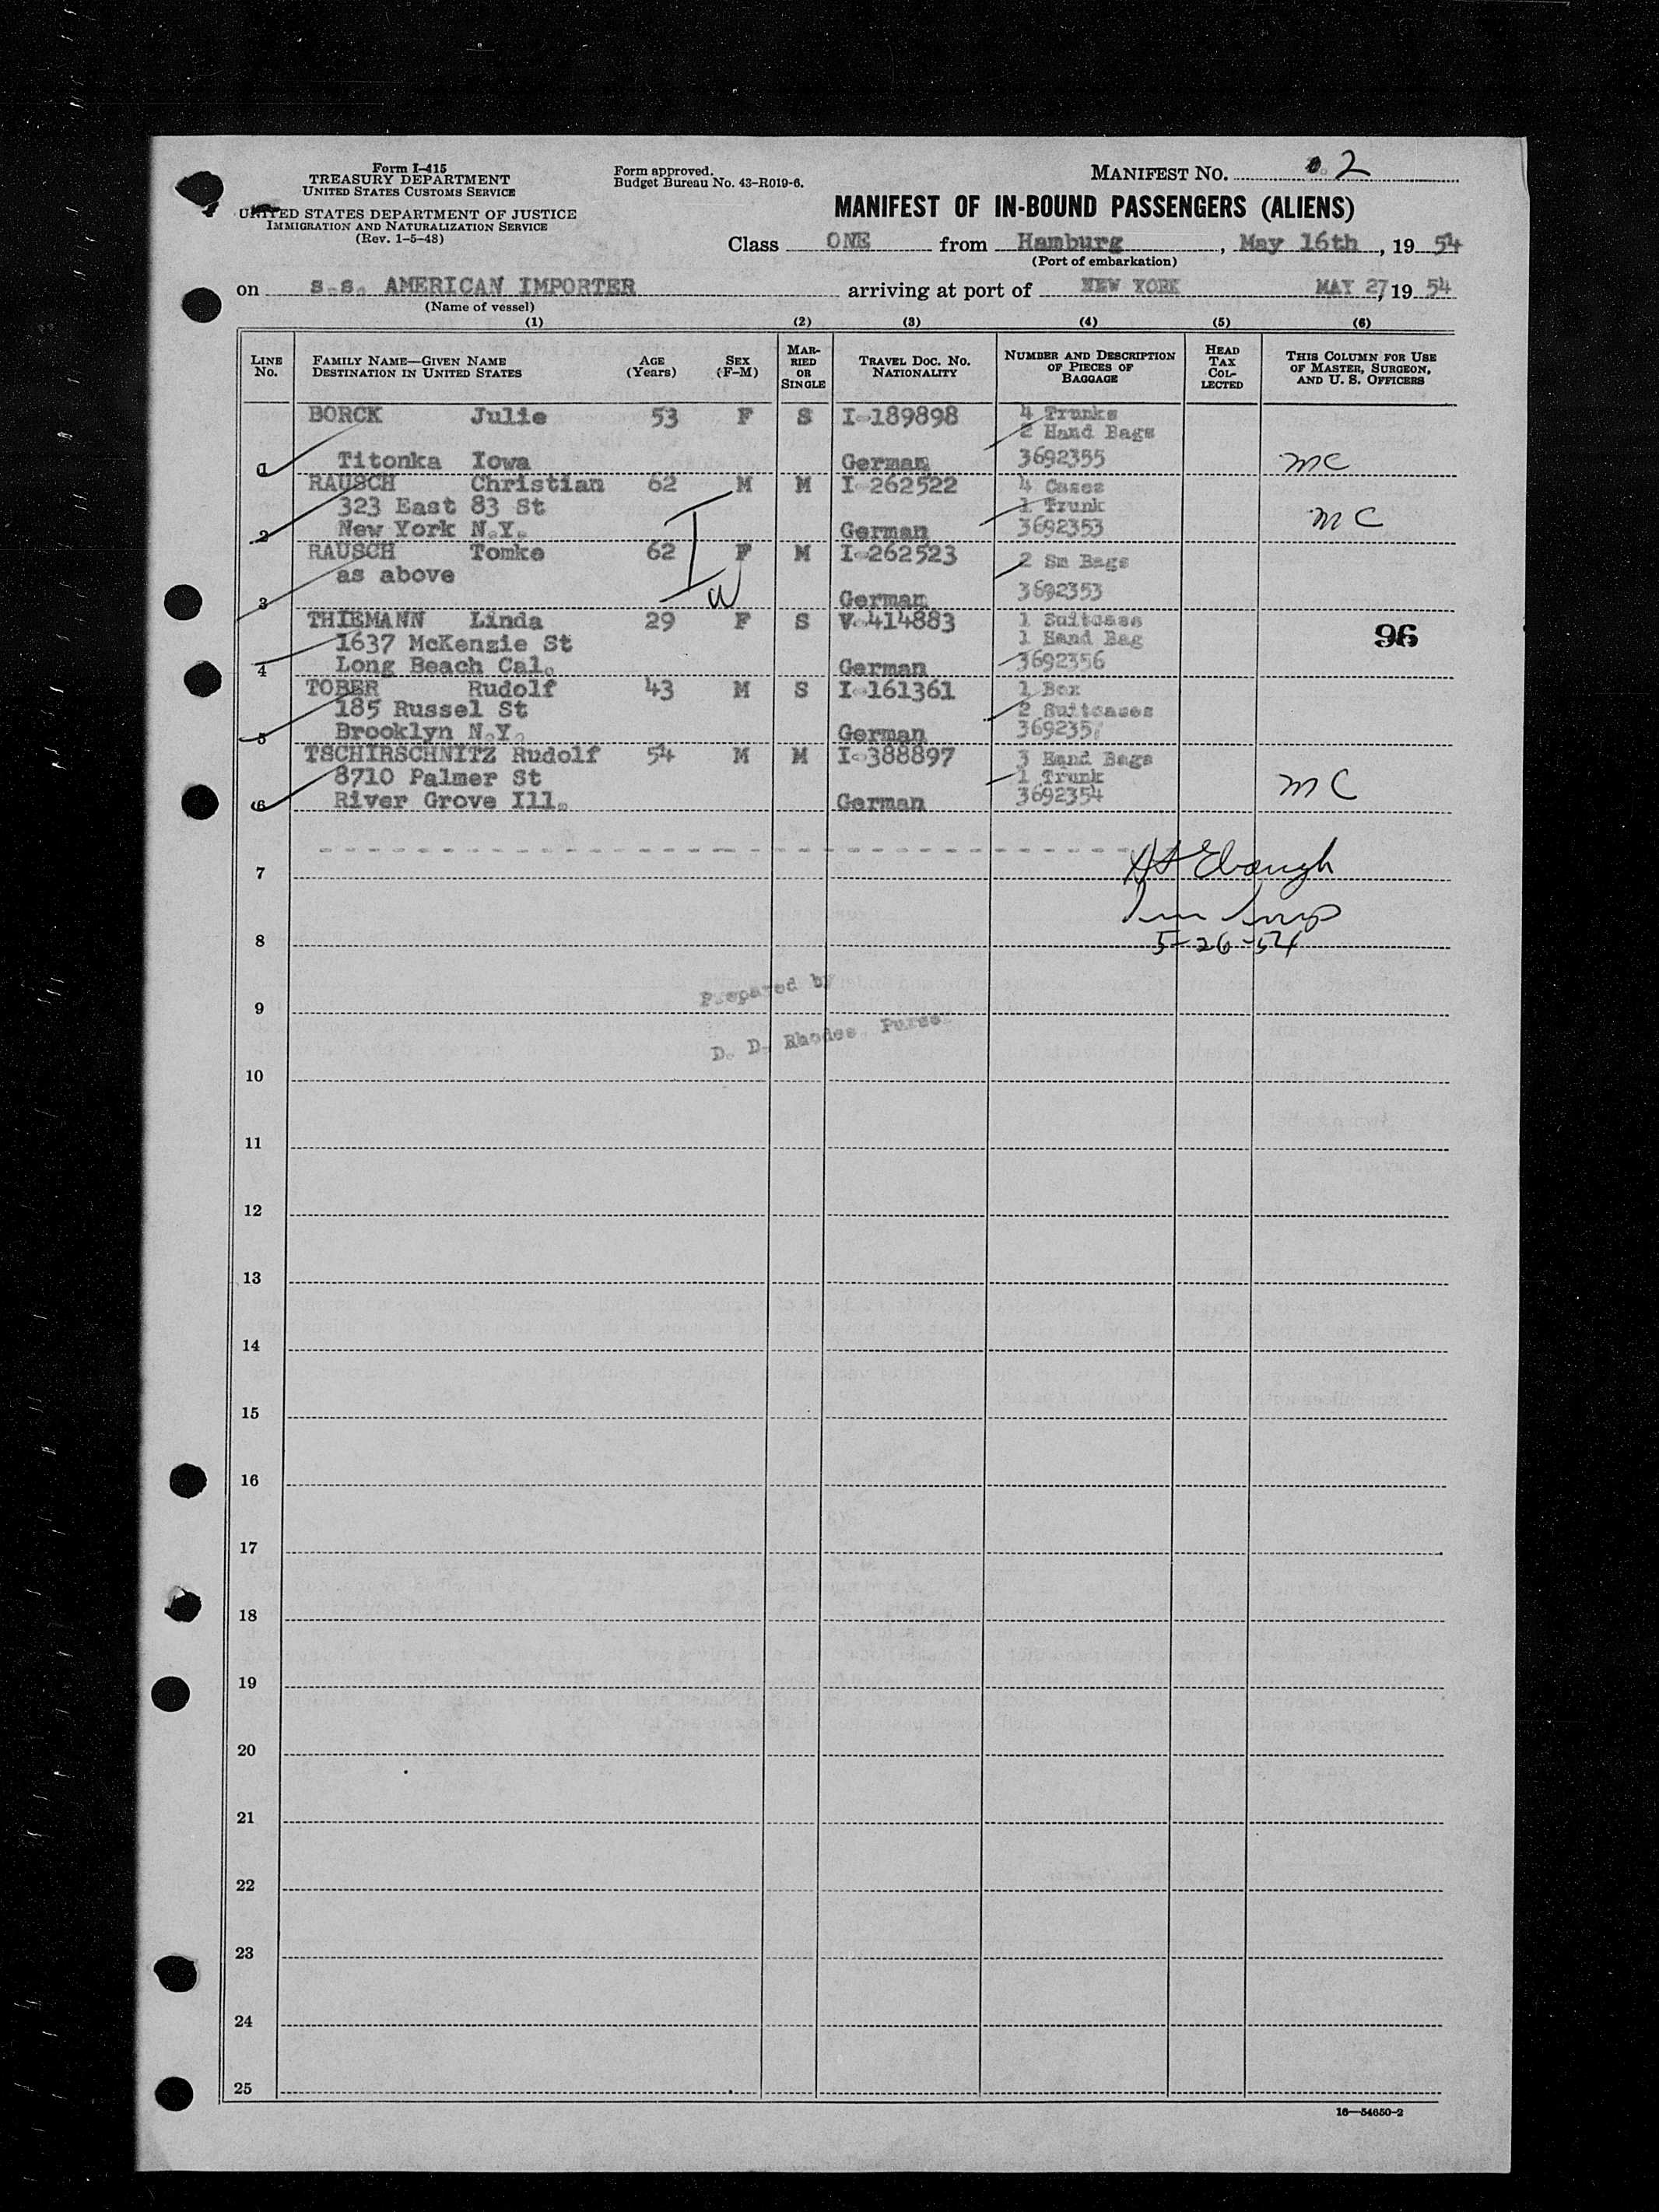 Form I-415
TREASURY DEPARTMENT
UNITED STATES CUSTOMS SERVICE
UNITED STATES DEPARTMENT OF JUSTICE
IMMIGRATION AND NATURALIZATION SERVICE
(Rev. 1-5-48)
Form approved.
Budget Bureau No. 43-R019-6.
MANIFEST NO. 2
MANIFEST OF IN-BOUND PASSENGERS (ALIENS)
Class ONE from Hamburg, May 16th, 19 54
(Port of embarkation)
on s.s. AMERICAN IMPORTER arriving at port of NEW YORK MAY 27, 19 54
(Name of vessel)
(1) (2) (3) (4) (5) (6)
LINE NO. FAMILY NAME—GIVEN NAME DESTINATION IN UNITED STATES AGE (Years) SEX (F-M) MARRIED OR SINGLE TRAVEL DOC. NO. NATIONALITY NUMBER AND DESCRIPTION OF PIECES OF BAGGAGE HEAD TAX COLLECTED THIS COLUMN FOR USE OF MASTER, SURGEON, AND U. S. OFFICERS
BORCK Julie 53 F S I-189898 4 Trunks
2 Hand Bags
1 Titonka Iowa German 3692355 MC
RAUSCH Christian 62 M M I-262522 4 Cases
323 East 83 St 1 Trunk MC
2 New York N.Y. German 3692353
RAUSCH Tomke 62 F M I-262523 2 Sm Bags
as above
3 German 3692353
THIEMANN Linda 29 F S V-414883 1 Suitcase
1637 McKenzie St 1 Hand Bag 96
4 Long Beach Cal. German 3692356
TOBER Rudolf 43 M S I-161361 1 Box
185 Russel St 2 Suitcases
5 Brooklyn N.Y. German 369235
TSCHIRSCHNITZ Rudolf 54 M M I-388897 3 Hand Bags
8710 Palmer St 1 Trunk MC
6 River Grove Ill. German 3692354
7 Ebaugh
8 5-26-54
Prepared by
9
D. D. Rhodes, Purser
10
11
12
13
14
15
16
17
18
19
20
21
22
23
24
25
16—54650-2